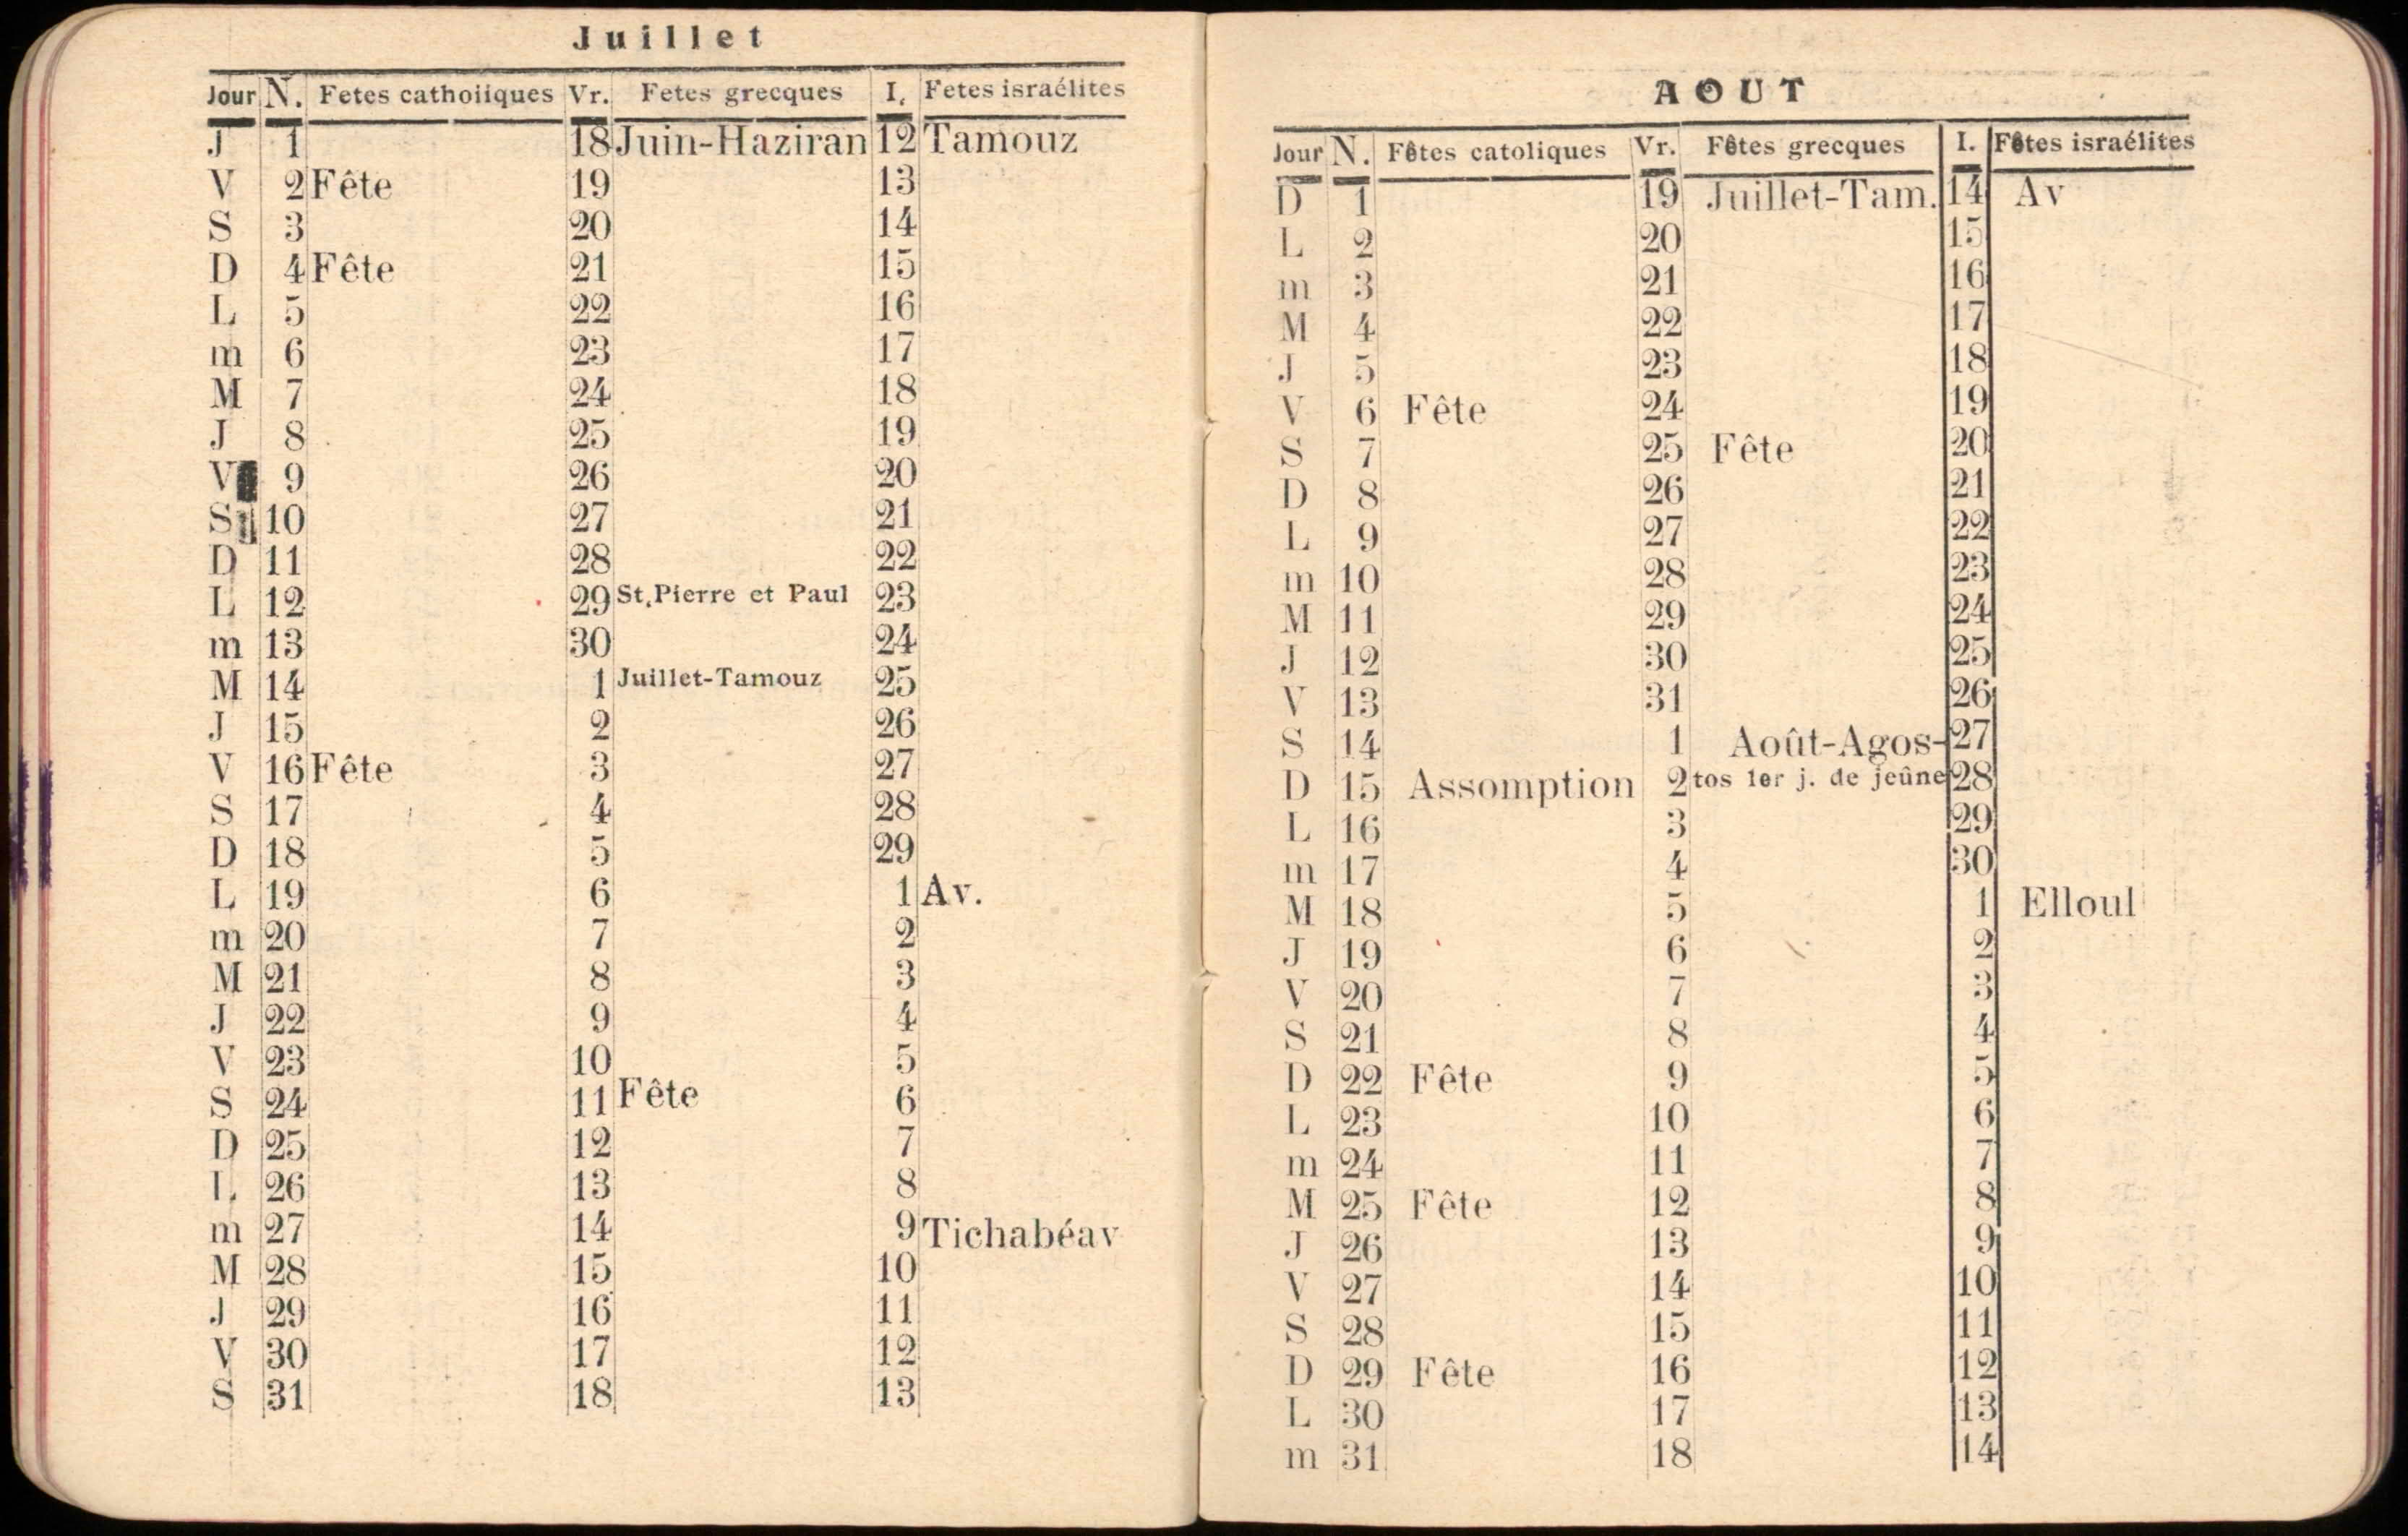 Juillet
Jour N. Fetes cathoiiques Vr. Fetes grecques I. Fetes israélites
J 1 18 Juin-Haziran 12 Tamouz
V 2 Fête 19 13
S 3 20 14
D 4 Fête 21 15
L 5 22 16
m 6 23 17
M 7 24 18
J 8 25 19
V 9 26 20
S 10 27 21
D 11 28 22
L 12 29 St.Pierre et Paul 23
m 13 30 24
M 14 1 Juillet-Tamouz 25
J 15 2 26
V 16 Fête 3 27
S 17 4 28
D 18 5 29
L 19 6 1 Av.
m 20 7 2
M 21 8 3
J 22 9 4
V 23 10 5
S 24 11 Fête 6
D 25 12 7
L 26 13 8
m 27 14 9 Tichabéav
M 28 15 10
J 29 16 11
V 30 17 12
S 31 18 13
AOUT
Jour N. Fêtes catoliques Vr. Fêtes grecques I. Fêtes israélites
D 1 19 Juillet-Tam. 14 Av
L 2 20 15
m 3 21 16
M 4 22 17
J 5 23 18
V 6 Fête 24 19
S 7 25 Fête 20
D 8 26 21
L 9 27 22
m 10 28 23
M 11 29 24
J 12 30 25
V 13 31 26
S 14 1 Août-Agos- 27
D 15 Assomption 2 tos 1er j. de jeûne 28
L 16 3 29
m 17 4 30
M 18 5 1 Elloul
J 19 6 2
V 20 7 3
S 21 8 4
D 22 Fête 9 5
L 23 10 6
m 24 11 7
M 25 Fête 12 8
J 26 13 9
V 27 14 10
S 28 15 11
D 29 Fête 16 12
L 30 17 13
m 31 18 14